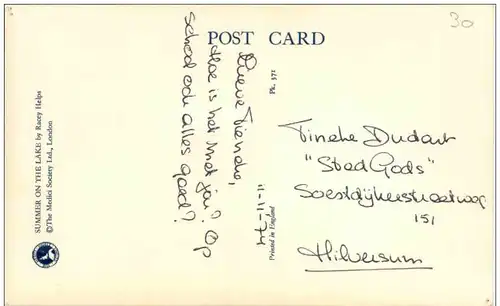 30
POST CARD
SUMMER ON THE LAKE by Racey Helps
©The Medici Society Ltd., London
Pk. 571
Printed in England
11-11-74
Lieve Tineke,
Hoe is het met jou? Op
school ook alles goed?
Tineke Dudart
"Stad Gods"
Soestdijkerstraatweg
151
Hilversum